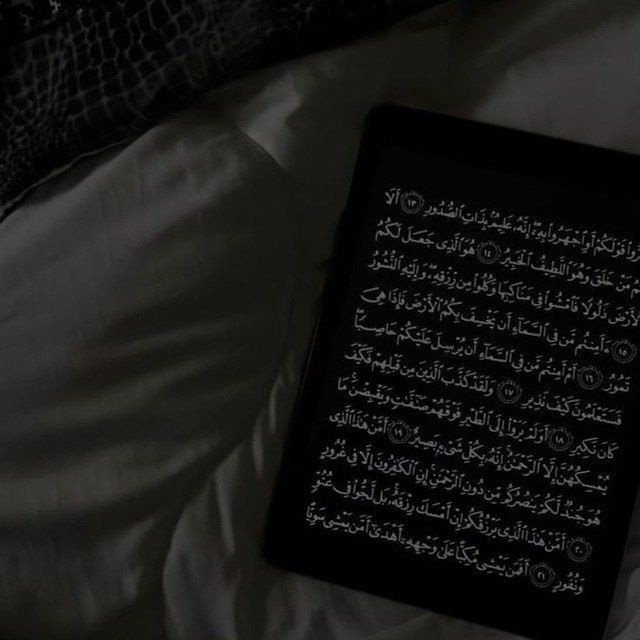 قَوْلَكُمْ أَوِ ٱجْهَرُوا۟ بِهِۦٓ إِنَّهُۥ عَلِيمٌۢ بِذَاتِ ٱلصُّدُورِ ١٣ أَلَا
مَنْ خَلَقَ وَهُوَ ٱللَّطِيفُ ٱلْخَبِيرُ ١٤ هُوَ ٱلَّذِى جَعَلَ لَكُمُ
ٱلْأَرْضَ ذَلُولًا فَٱمْشُوا۟ فِى مَنَاكِبِهَا وَكُلُوا۟ مِن رِّزْقِهِۦ وَإِلَيْهِ ٱلنُّشُورُ
١٥ ءَأَمِنتُم مَّن فِى ٱلسَّمَآءِ أَن يَخْسِفَ بِكُمُ ٱلْأَرْضَ فَإِذَا هِىَ
تَمُورُ ١٦ أَمْ أَمِنتُم مَّن فِى ٱلسَّمَآءِ أَن يُرْسِلَ عَلَيْكُمْ حَاصِبًا
فَسَتَعْلَمُونَ كَيْفَ نَذِيرِ ١٧ وَلَقَدْ كَذَّبَ ٱلَّذِينَ مِن قَبْلِهِمْ فَكَيْفَ
كَانَ نَكِيرِ ١٨ أَوَلَمْ يَرَوْا۟ إِلَى ٱلطَّيْرِ فَوْقَهُمْ صَٰٓفَّٰتٍ وَيَقْبِضْنَ مَا
يُمْسِكُهُنَّ إِلَّا ٱلرَّحْمَٰنُ إِنَّهُۥ بِكُلِّ شَىْءٍۭ بَصِيرٌ ١٩ أَمَّنْ هَٰذَا ٱلَّذِى
هُوَ جُندٌ لَّكُمْ يَنصُرُكُم مِّن دُونِ ٱلرَّحْمَٰنِ إِنِ ٱلْكَٰفِرُونَ إِلَّا فِى غُرُورٍ
٢٠ أَمَّنْ هَٰذَا ٱلَّذِى يَرْزُقُكُمْ إِنْ أَمْسَكَ رِزْقَهُۥ بَل لَّجُّوا۟ فِى عُتُوٍّ
وَنُفُورٍ ٢١ أَفَمَن يَمْشِى مُكِبًّا عَلَىٰ وَجْهِهِۦٓ أَهْدَىٰٓ أَمَّن يَمْشِى سَوِيًّا